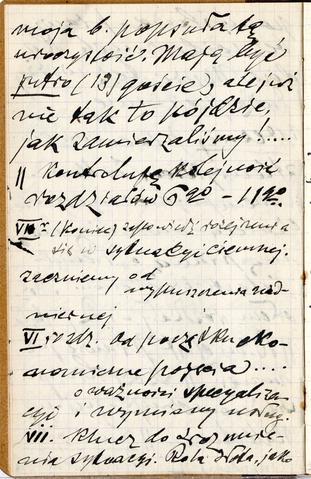 moja b. popsuła tę
uroczystość. Mają być
jutro (13) goście), ale już
nie tak to pójdzie,
jak zamierzaliśmy.....
|| kontroluję kolejność
rozdziałów 6²⁰ – 11²⁰.
VIII r. (koniec)
się w sytuacji ciemnej.
zaczniemy od
wypuszczenia
VI. rozdz. od początku eko-
nomiczne pojęcia.....
o ważności specjaliza-
cji i wymiany usług
VII. klucz do zrozumie-
nia sytuacji. Rola złota, jako